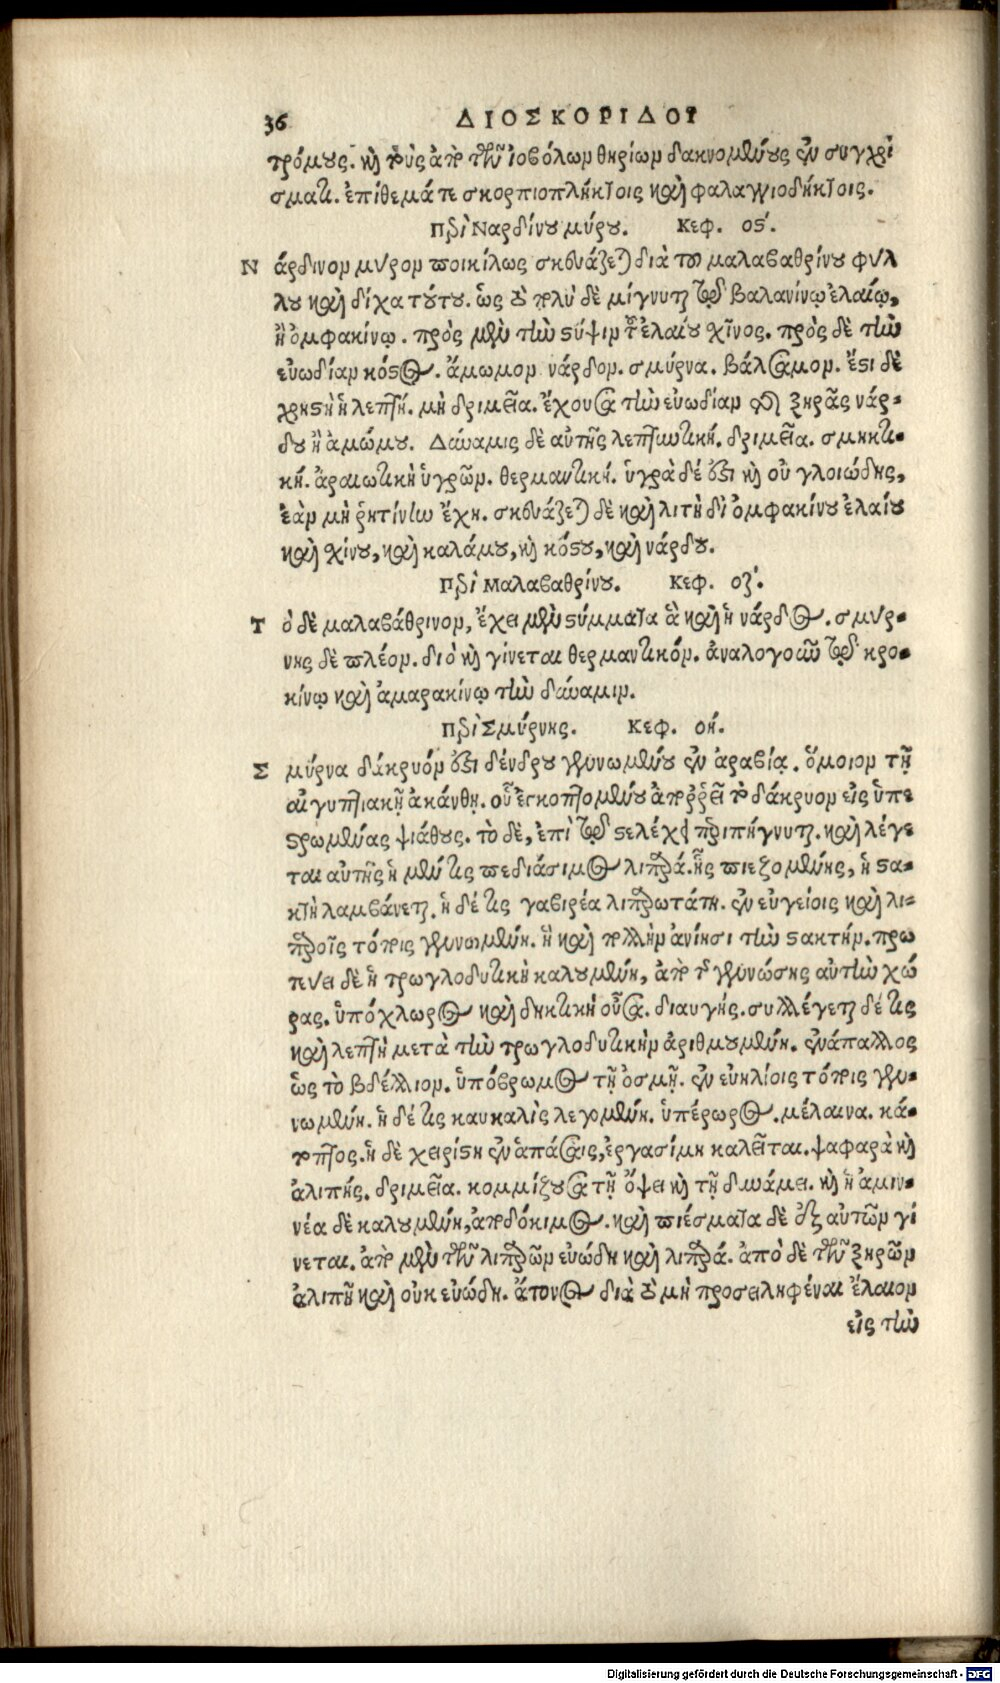 36 ΔΙΟΣΚΟΡΙΔΟΥ
τρόμους. καὶ τοὺς ἀπὸ τῶν ἰοβόλων θηρίων δακνομένους ἐν συγχρί
σματι. ἐπίθεμά τε σκορπιοπλήκτοις καὶ φαλαγγιοδήκτοις.
Περὶ Ναρδίνου μύρου. Κεφ. οϛ΄.
Νάρδινον μύρον ποικίλως σκευάζεται διὰ τοῦ μαλαβαθρίνου φύλ
λου καὶ δίχα τούτου. ὡς τὸ πολὺ δὲ μίγνυται τῷ βαλανίνῳ ἐλαίῳ,
ἢ ὀμφακίνῳ. πρὸς μὲν τὴν στύψιν τοῦ ἐλαίου χῖνος. πρὸς δὲ τὴν
εὐωδίαν κόστος. ἄμωμον νάρδον. σμύρνα. βάλσαμον. ἔστι δὲ
χρηστὴ ἡ λεπτή. μὴ δριμεῖα. ἔχουσα τὴν εὐωδίαν τῆς ξηρᾶς νάρ-
δου ἢ ἀμώμου. Δύναμις δὲ αὐτῆς λεπτυντική. δριμεῖα. σμηκτι-
κή. ἀραιωτικὴ ὑγρῶν. θερμαντική. ὑγρὰ δέ ἐστι καὶ οὐ γλοιώδης,
ἐὰν μὴ ῥητίνην ἔχῃ. σκευάζεται δὲ καὶ λιτὴ δι ὀμφακίνου ἐλαίου
καὶ χίνου, καὶ καλάμου, καὶ κόστου, καὶ νάρδου.
Περὶ Μαλαβαθρίνου. Κεφ. οζ΄.
Τὸ δὲ μαλαβάθρινον, ἔχει μὲν στύμματα ἃ καὶ ἡ νάρδος. σμύρ-
νης δὲ πλέον. διὸ καὶ γίνεται θερμαντικόν. ἀναλογοῦν τῷ κρο-
κίνῳ καὶ ἀμαρακίνῳ τὴν δύναμιν.
Περὶ Σμύρνης. Κεφ. οή.
Σμύρνα δάκρυόν ἐστι δένδρου γεννωμένου ἐν ἀραβίᾳ. ὅμοιον τῇ
αἰγυπτιακῇ ἀκάνθῃ. οὗ ἐγκοπτομένου ἀπορρεῖ τὸ δάκρυον εἰς ὑπε
στρωμένας ψιάθους. τὸ δὲ, ἐπὶ τῷ στελέχει περιπήγνυται. καὶ λέγε
ται αὐτῆς ἡ μέν τις πεδιάσιμος λιπαρά. ἧς πιεζομένης, ἡ στα-
κτὴ λαμβάνεται. ἡ δέ τις γαβιρέα λιπαρωτάτη. ἐν εὐγείοις καὶ λι-
παροῖς τόποις γεννωμένη. ἣ καὶ πολλὴν ἀνίησι τὴν στακτήν. πρω
τεύει δὲ ἡ τρωγλοδυτικὴ καλουμένη, ἀπὸ τῆς γεννώσης αὐτὴν χώ
ρας. ὑπόχλωρος καὶ δηκτικὴ οὖσα. διαυγής. συλλέγεται δέ τις
καὶ λεπτὴ μετὰ τὴν τρωγλοδυτικὴν ἀριθμουμένη. ἐνάπαλλος
ὡς τὸ βδέλλιον. ὑπόβρωμος τῇ ὀσμῇ. ἐν εὐηλίοις τόποις γεν-
νωμένη. ἡ δέ τις καυκαλὶς λεγομένη. ὑπέρωρος. μέλαινα. κά-
τοπτος. ἡ δὲ χειρίστη ἐν ἁπάσαις, ἐργασίμη καλεῖται. ψαφαρὰ καὶ
ἀλιπής. δριμεῖα. κομμίζουσα τῇ ὄψει καὶ τῇ δυνάμει. καὶ ἡ ἀμιν-
νέα δὲ καλουμένη, ἀποδόκιμος. καὶ πιέσματα δὲ ἐξ αὐτῶν γί
νεται. ἀπὸ μὲν τῶν λιπαρῶν εὐώδη καὶ λιπαρά. ἀπὸ δὲ τῶν ξηρῶν
ἀλιπῆ καὶ οὐκ εὐώδη. ἄτονος διὰ τὸ μὴ προσειληφέναι ἔλαιον
εἰς τὴν
Digitalisierung gefördert durch die Deutsche Forschungsgemeinschaft - DFG